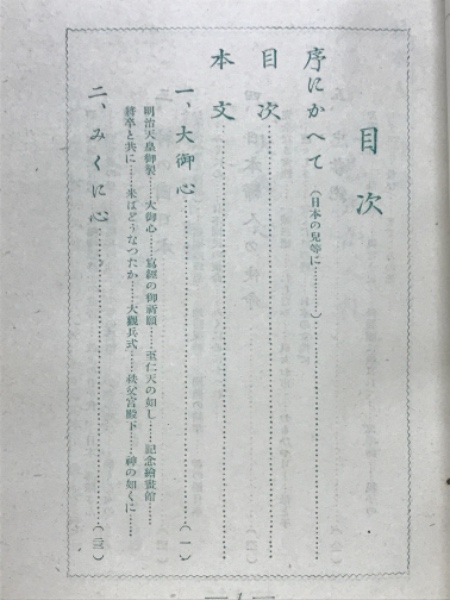 目次
序にかへて(日本の兒等に………)………
目次………
本文………
一、大御心………(一)
明治天皇御製……大御心……寫經の御祈願……至仁天の如し……記念繪畫館……
將卒と共に……米はどうなつたか……大觀兵式……秩父宮殿下……神の如くに……
二、みくに心………(三)
— 1 —